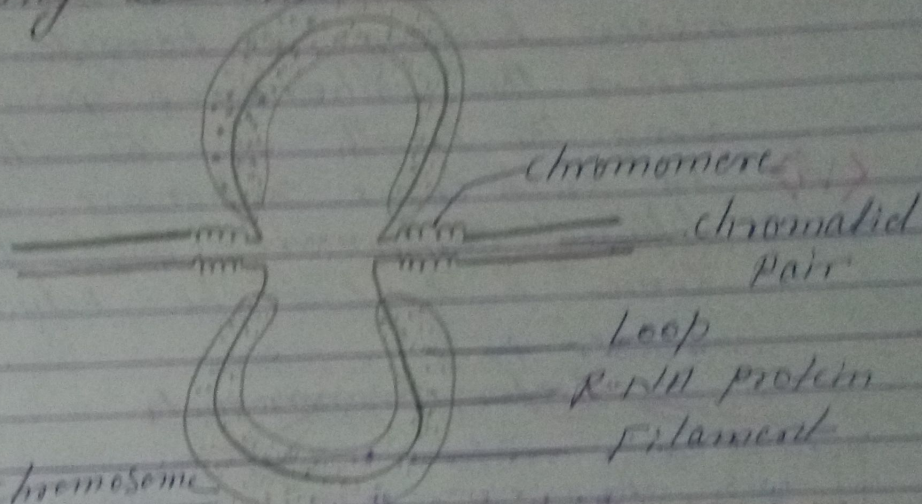 Chromomere
Chromatid
Pair
Loop
RNA protein
Filament
hromosome